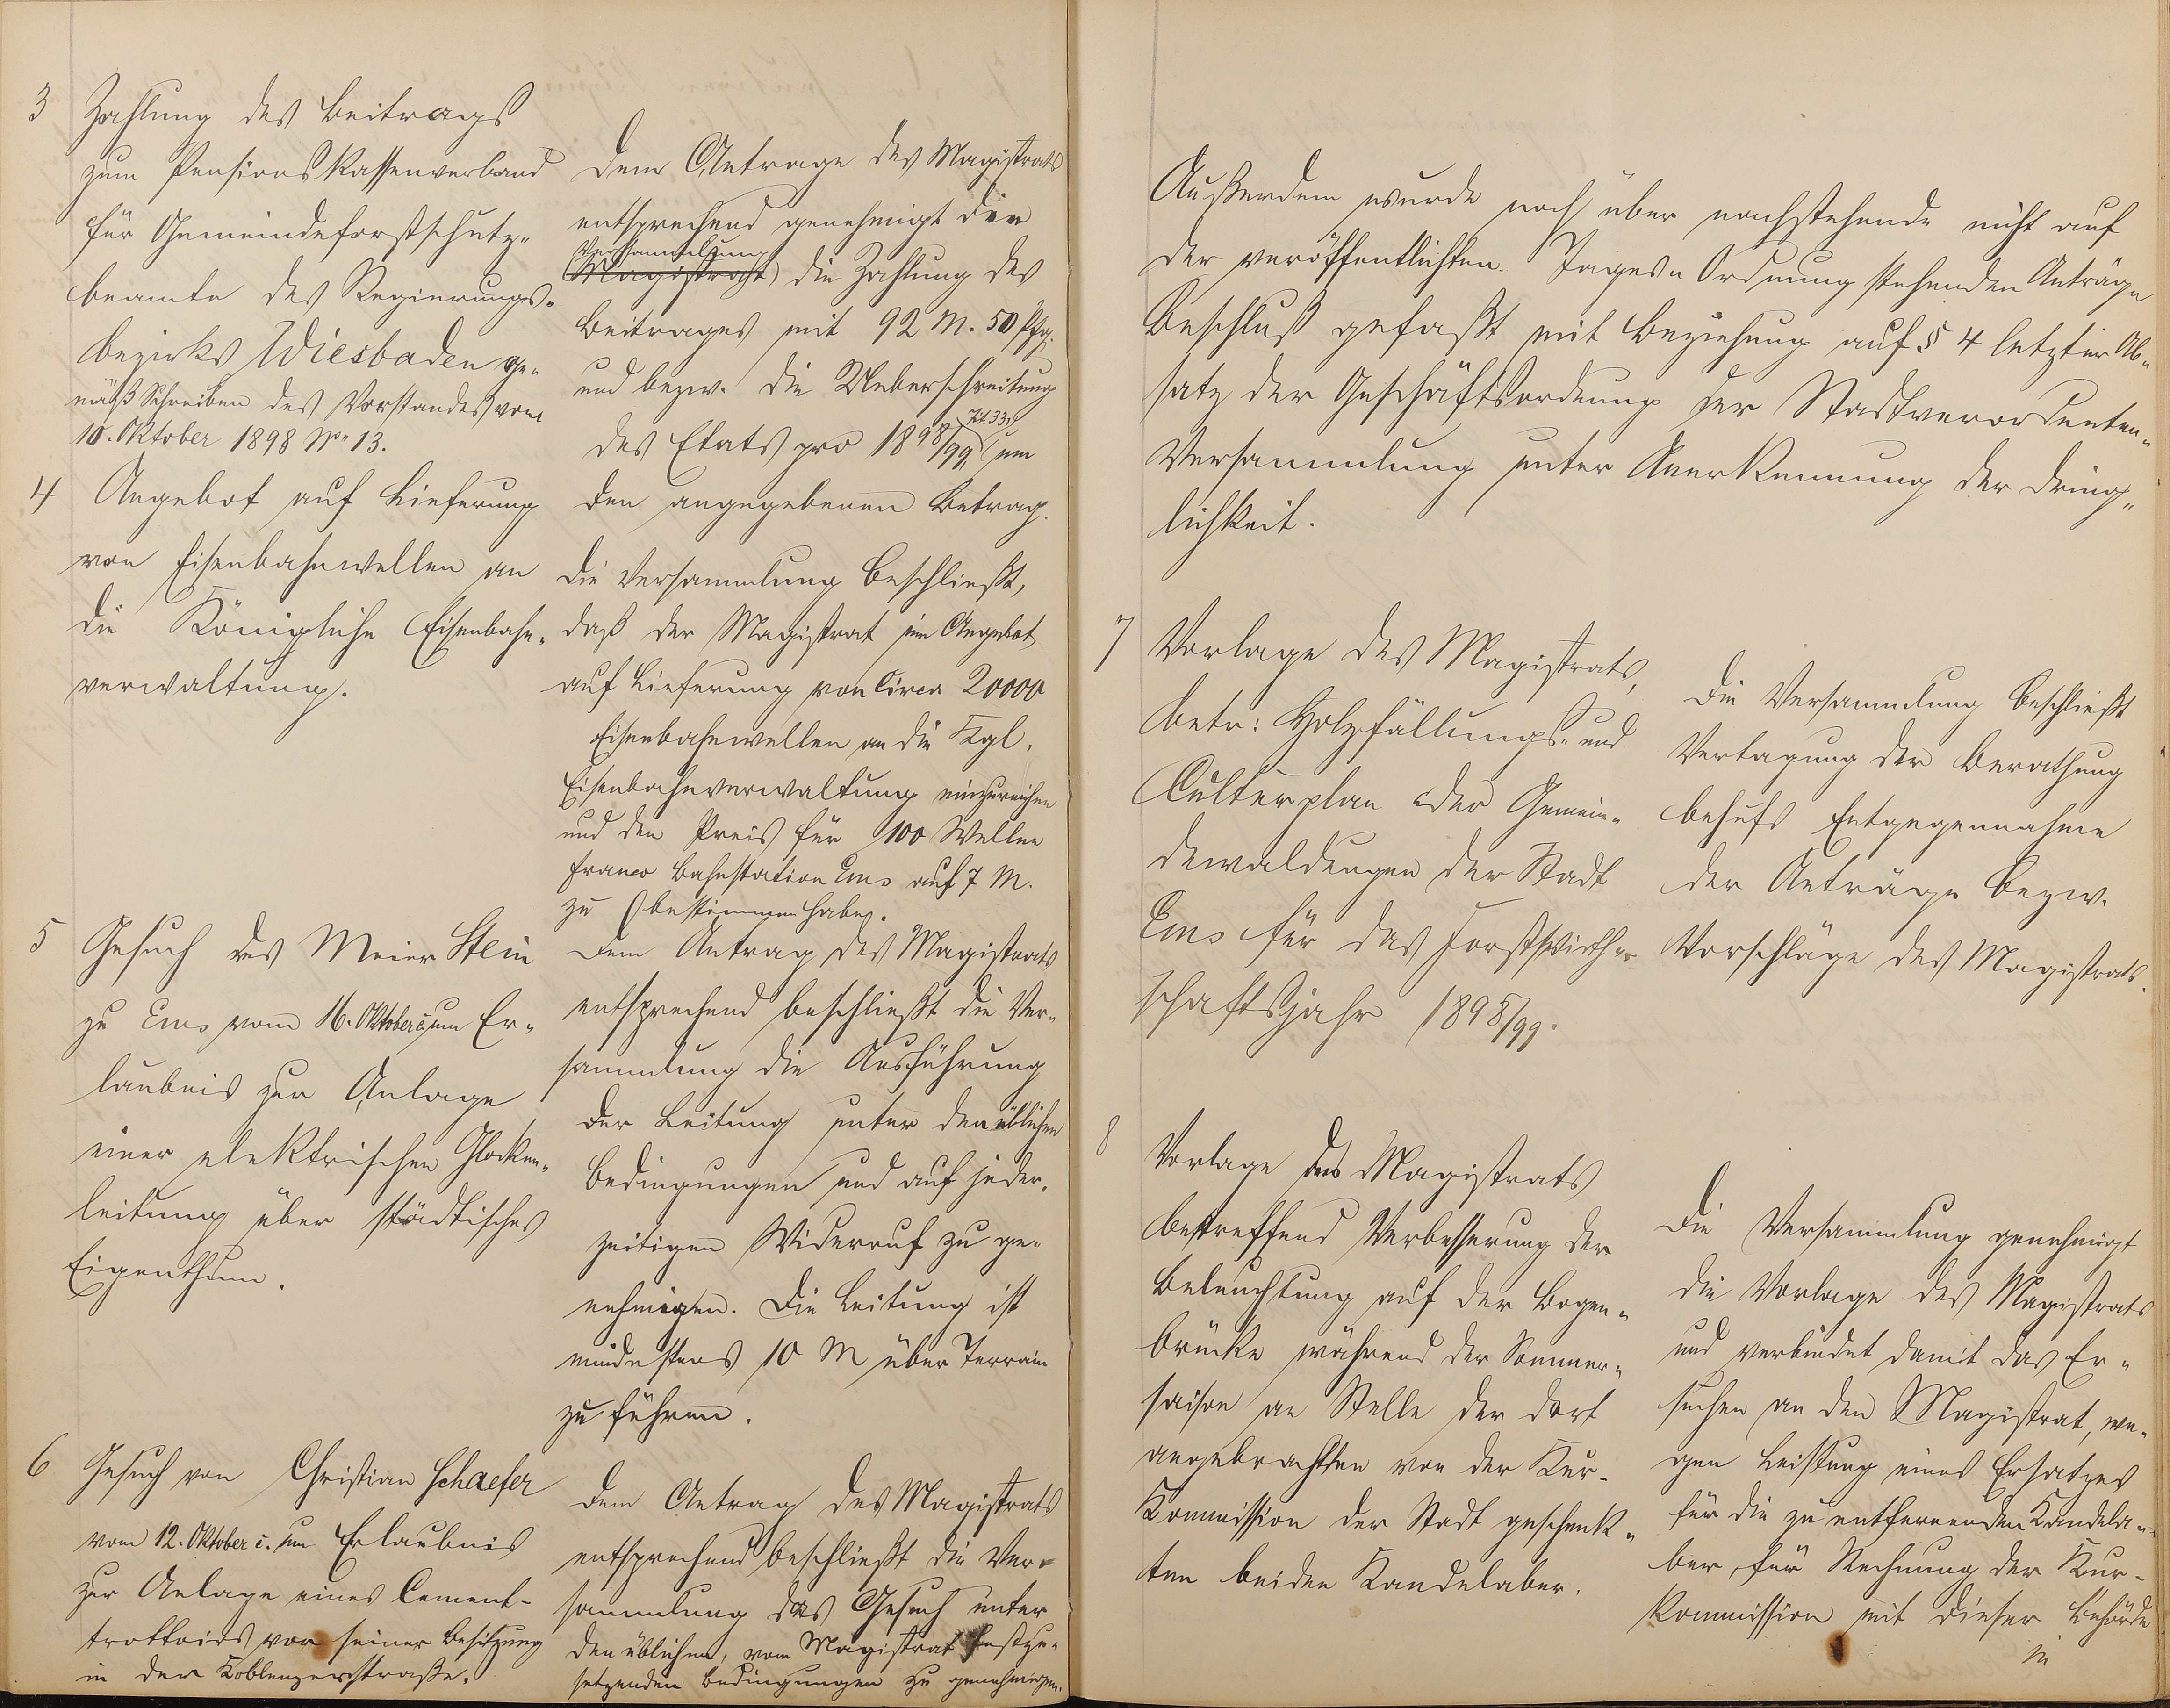 3 Zahlung des Beitrags
zum Pensionskassenverband
für Gemeindeforstschutz-
beamte des Regierungs-
bezirks Wiesbaden ge-
mäß Schreiben des Vorstandes vom
10. Oktober 1898 No 13.
Dem Antrage des Magistrats
entsprechend genehmigt die
Versammlung
(Magistrat) die Zahlung des
Beitrages mit 92 M. 50 Pfg.
und bezw. die Ueberschreitung
Tit. 33
des Etats pro 1898/99 um
den angegebenen Betrag.
4 Angebot auf Lieferung
von Eisenbahnwellen an
die Königliche Eisenbahn-
verwaltung.
Die Versammlung beschließt,
daß der Magistrat ein Angebot
auf Lieferung von Circa 20000
Eisenbahnwellen an die Kgl.
Eisenbahnverwaltung einzureichen
und den Preis für 100 Wellen
franco Bahnstation Ems auf 7 M.
zu bestimmen habe.
5 Gesuch des Meier Stein
zu Ems vom 16. Oktober c. um Er-
laubnis zur Anlage
einer elektrischen Glocken-
leitung über städtisches
Eigenthum.
Dem Antrag des Magistrats
entsprechend beschließt die Ver-
sammlung die Ausführung
der Leitung unter den üblichen
Bedingungen und auf jeder-
zeitigen Widerruf zu ge-
nehmigen. Die Leitung ist
mindestens 10 M über Terrain
zu führen.
6 Gesuch von Christian Schaefer
vom 12. Oktober c. um Erlaubnis
zur Anlage eines Cement-
trottoirs vor seiner Besitzung
in der Koblenzerstraße.
Dem Antrag des Magistrats
entsprechend beschließt die Ver-
sammlung das Gesuch unter
den üblichen, vom Magistrat festzu-
setzenden Bedingungen zu genehmigen.
Außerdem wurde noch über nachstehende nicht auf
der veröffentlichten Tages-Ordnung stehenden Anträge
Beschluß gefaßt mit Beziehung auf § 4 letzter Ab-
satz der Geschäftsordnung der Stadtverordneten-
Versammlung unter Anerkennung der Dring-
lichkeit.
7 Vorlage des Magistrats,
betr: Holzfällungs- und
Culturplan der Gemein-
dewaldungen der Stadt
Ems für das Forstwirth-
schaftsjahr 1898/99.
Die Versammlung beschließt
Vertagung der Berathung
behufs Entgegennahme
der Anträge bezw.
Vorschläge des Magistrats.
8 Vorlage des Magistrats
betreffend Verbesserung der
Beleuchtung auf der Bogen-
brücke während der Sommer-
saison an Stelle der dort
angebrachten von der Kur-
Kommission der Stadt geschenk-
ten beiden Kandelaber.
Die Versammlung genehmigt
die Vorlage des Magistrats
und verbindet damit das Er-
suchen an den Magistrat, we-
gen Leistung eines Ersatzes
für die zu entfernenden Kandela-
ber, für Rechnung der Kur-
Kommission mit dieser Behörde
in